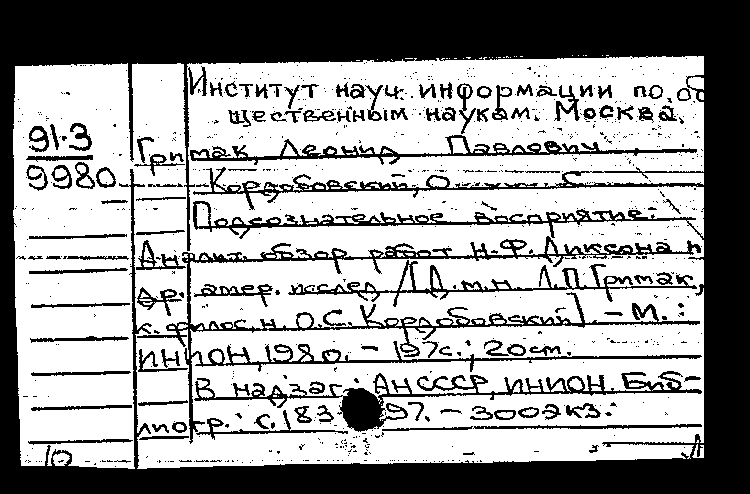 Институт науч. информации по об
щественным наукам. Москва.
91-3
9980
Гримак, Леонид Павлович,
Кордобовский, О. С.
Подсознательное восприятие:
Аналит. обзор работ Н.Ф. Диксона и
др. амер. исслед / [Д.м.н. Л.П. Гримак,
к. филос. н. О.С. Кордобовский]. – М. :
ИНИОН, 1980. – 197с.; 20см.
В надзаг.: АН СССР, ИНИОН. Биб-
лиогр.: с. 183 97. – 300экз.
10